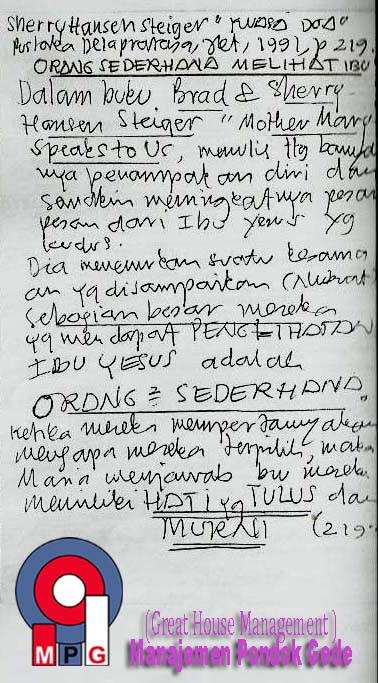 Sherry Hansen Steiger "KUASA DOA"
Pustaka Delapratasa, Jkt, 1991, p 219.
ORANG SEDERHANA MELIHAT IBU
Dalam buku Brad & Sherry
Hansen Steiger "Mother Mary
Speaks to Us, menulis ttg banyak
nya penampakan diri dan
semakin meningkatnya pesan
pesan dari Ibu Yesus yg
kudus.
Dia menemukan suatu kesama
an yg disampaikan
sebagian besar mereka
yg mendapat PENGLIHATAN
IBU YESUS adalah
ORANG2 SEDERHANA.
Ketika mereka mempertanyakan
mengapa mereka terpilih, maka
Maria menjawab bw mereka
memiliki HATI yg TULUS dan
MURNI (219.
MPG
(Great House Management )
Manajemen Pondok Gede